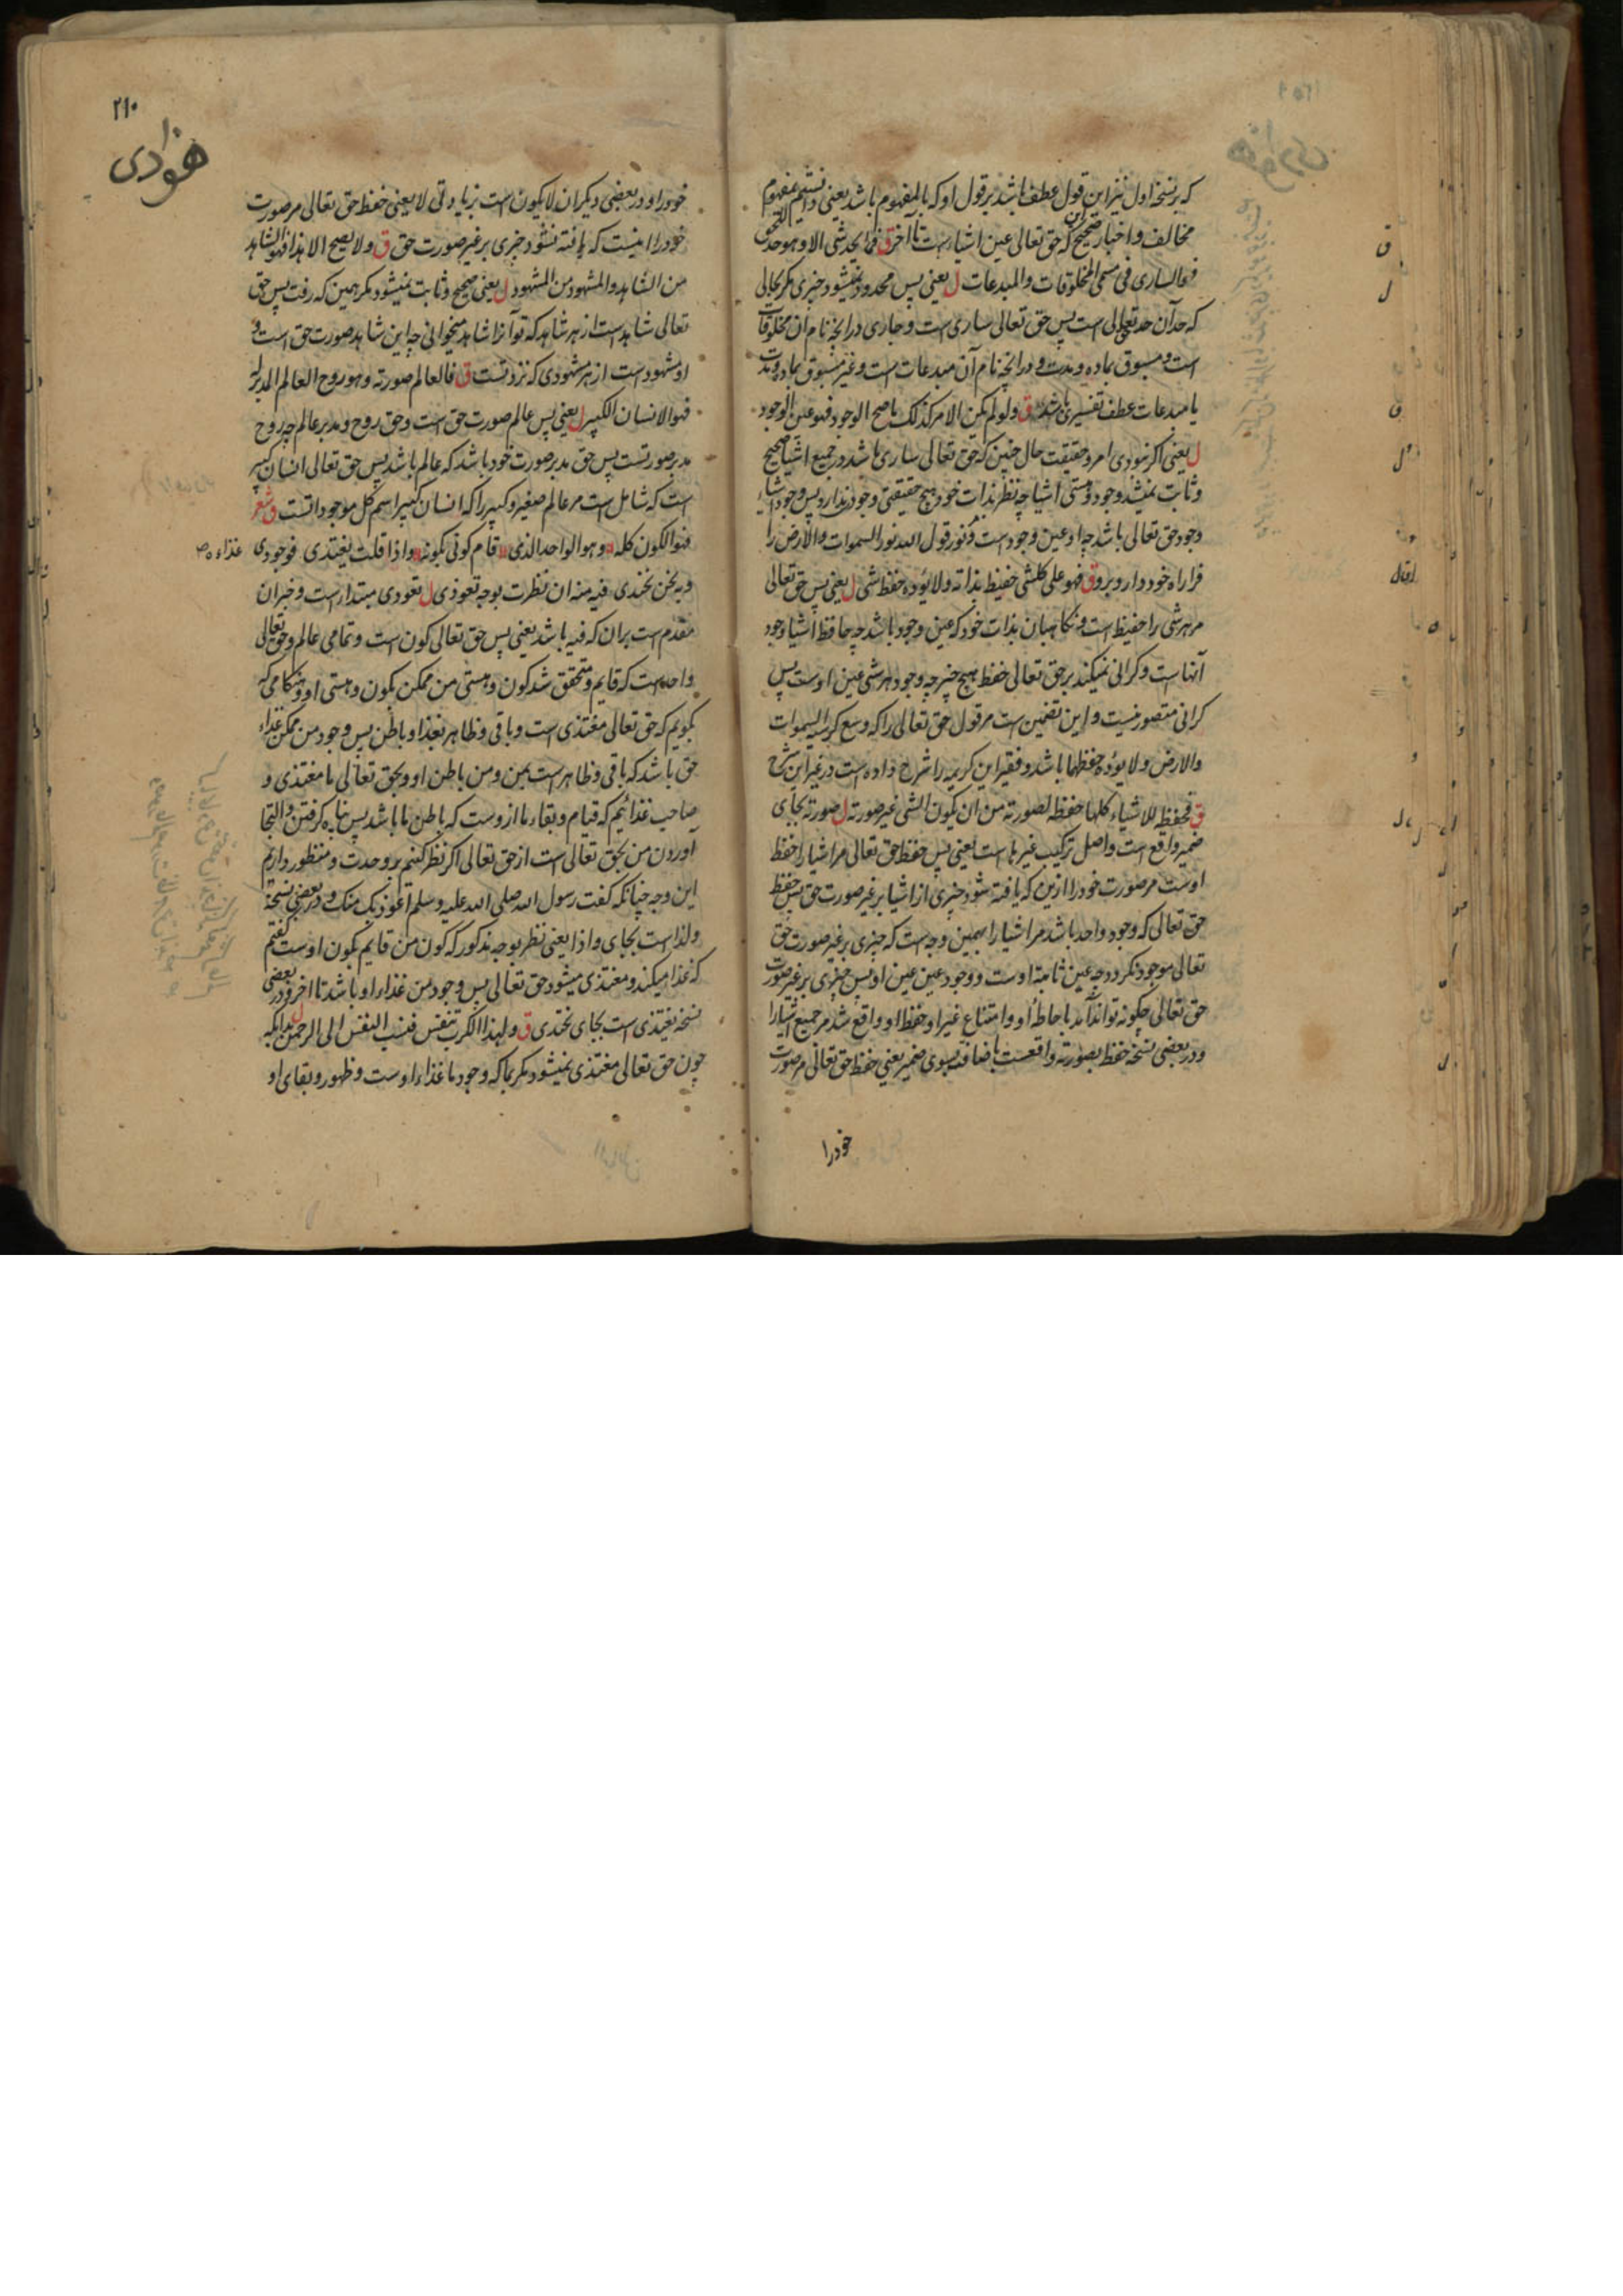 که برنسخه اول نیز این قول عطف باشد بر قول او که بالمفهوم باشد یعنی دانستیم بمفهوم
مخالف و اخبار صحیح که حق تعالی عین اشیاست تا آخر ق فما یحد شی الا وهو حد للحق
فهو الساری فی مسمی المخلوقات والمبدعات ل یعنی پس محدود نمیشود چیزی مکر بحالی
که حد آن حد حق تعالی است پس حق تعالی ساری است و جاری در انچه نام آن مخلوقات
است و مسبوق بماده و مدت و در انچه نام آن مبدعات است و غیر مسبوق بماده و مدت
یا مبدعات عطف تفسیری باشد ق ولو لم یکن الامر کذلک ما صح الوجود فهو عین الوجود
ل یعنی اکر نبودی امر و حقیقت حال چنین که حق تعالی ساری باشد در جمیع اشیا صحیح
و ثابت نمیشد وجود و هستی اشیا چه نظر بذات خود هیچ حقیقتی وجود ندارد پس وجود اشیاء
وجود حق تعالی باشد چه او عین وجود است و نور قول الله نور السموات والارض را
فرا راه خود دار و برو ق فهو علی کلشی حفیظ بذاته ولا یؤده حفظ شی ل یعنی پس حق تعالی
مر هر شی را حفیظ است و نکاهبان بذات خود که عین وجود باشد چه حافظ اشیا وجود
آنهاست و کرانی نمیکند بر حق تعالی حفظ هیچ چیز چه وجود هر شی عین اوست پس
کرانی متصور نیست و این تضمین است مر قول حق تعالی را که وسع کرسیه السموات
والارض ولا یؤده حفظهما باشد و فقیر این کریمه را شرح داده است در غیر این شرح
ق فحفظه للاشیاء کلها حفظه لصورته من ان یکون الشی غیر صورته ل صورته بجای
ضمیر واقع است و اصل ترکیب غیرها است یعنی پس حفظ حق تعالی مر اشیا را حفظ
اوست مر صورت خود را ازین که یافته شود چیزی از اشیا بر غیر صورت حق پس حفظ
حق تعالی که وجود واحد باشد مر اشیا را بهمین وجه است که چیزی بر غیر صورت حق
تعالی موجود نکردد چه عین ثابته اوست و وجود عین عین او پس چیزی بر غیر صورت
حق تعالی چکونه تواند آمد با حاطه او و امتناع غیر او حفظ او واقع شد مر جمیع اشیا را
و در بعضی نسخه حفظ بصورته واقعست باضافت بسوی ضمیر یعنی حفظ حق تعالی مر صورت
خودرا
۲۱۰
خودرا و در بعضی دیکر ان لا یکون است بزیادتی لا یعنی حفظ حق تعالی مر صورت
خود را اینست که یافته نشود چیزی بر غیر صورت حق ق ولا یصح الا هذا فهو الشاهد
من الشاهد والمشهود من المشهود ل یعنی صحیح و ثابت نمیشود مکر همین که رفت پس حق
تعالی شاهد است از هر شاهد که تو آنرا شاهد میخوانی چه این شاهد صورت حق است و
او مشهود است از هر مشهودی که نزد تست ق فالعالم صورته وهو روح العالم المدبر له
فهو الانسان الکبیر ل یعنی پس عالم صورت حق است و حق روح و مدبر عالم چه روح
مدبر صورتست پس حق مدبر صورت خود باشد که عالم باشد پس حق تعالی انسان کبیر
است که شامل است مر عالم صغیر و کبیر را که انسان کبیر اسم کل موجوداتست ق شعر
فهو الکون کله وهو الواحد الذی قام کونی بکونه واذا قلت یغتذی فوجودی غذاءه
وبه نحن نحتذی فبه منه ان نظرت بوجه تعوذی ل تعوذی مبتداء است و خبر ان
مقدم است بران که فبه باشد یعنی پس حق تعالی کون است و تمامی عالم و حق تعالی
واحد است که قایم و متحقق شد کون و هستی من ممکن بکون و هستی او و هنکامی که
بکویم که حق تعالی مغتذی است و باقی و ظاهر بغذا و باطن پس وجود من ممکن غذاء
حق باشد که باقی و ظاهر است بمن و من باطن او و بحق تعالی ما مغتذی و
صاحب غذائیم که قیام و بقاء ما ازوست که باطن ما باشد پس پناه کرفتن و التجا
آوردن من بحق تعالی است از حق تعالی اکر نظر کنیم بر وحدت و منظور داریم
این وجه چنانکه کفت رسول الله صلی الله علیه وسلم اعوذ بک منک و در بعضی نسخه
ولذا است بجای واذا یعنی نظر بوجه مذکور که کون من قایم بکون اوست کفتم
که غذا میکند و مغتذی میشود حق تعالی پس وجود من غذاء او باشد تا اخر و در بعضی
نسخه نغتذی است بجای نحتذی ق ولهذا الکرب تنفس فنسب النفس الی الرحمن ل بدانکه
چون حق تعالی مغتذی نمیشود مکر بما که وجود ما غذاء اوست و ظهور و بقای او